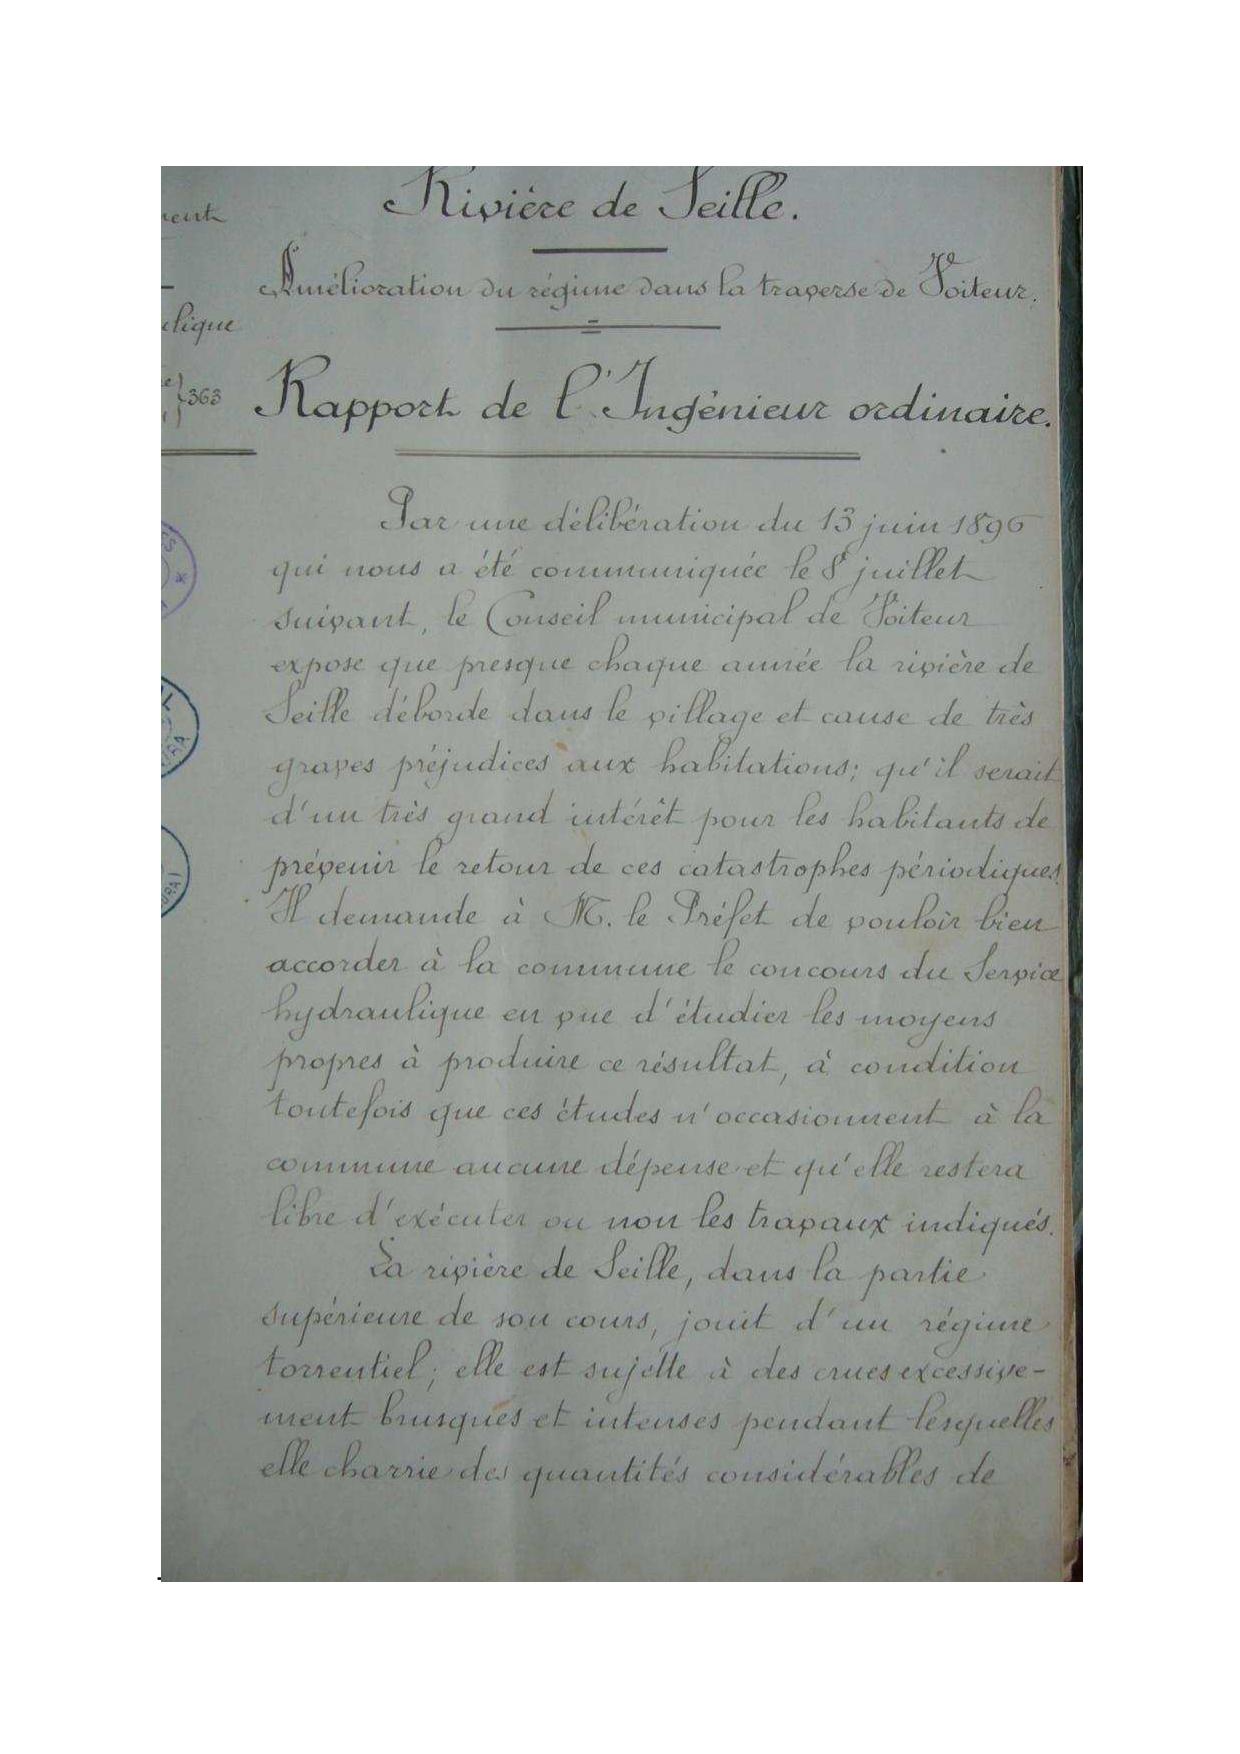 Rivière de Seille.
Amélioration du régime dans la traverse de Voiteur.
lique
363
Rapport de l'Ingénieur ordinaire.
Par une délibération du 13 juin 1896
qui nous a été communiquée le 8 juillet
suivant, le Conseil municipal de Voiteur
expose que presque chaque année la rivière de
Seille déborde dans le village et cause de très
graves préjudices aux habitations; qu'il serait
d'un très grand intérêt pour les habitants de
prévenir le retour de ces catastrophes périodiques.
Il demande à M. le Préfet de vouloir bien
accorder à la commune le concours du Service
hydraulique en vue d'étudier les moyens
propres à produire ce résultat, à condition
toutefois que ces études n'occasionnent à la
commune aucune dépense et qu'elle restera
libre d'exécuter ou non les travaux indiqués.
La rivière de Seille, dans la partie
supérieure de son cours, jouit d'un régime
torrentiel; elle est sujette à des crues excessive-
ment brusques et intenses pendant lesquelles
elle charrie des quantités considérables de